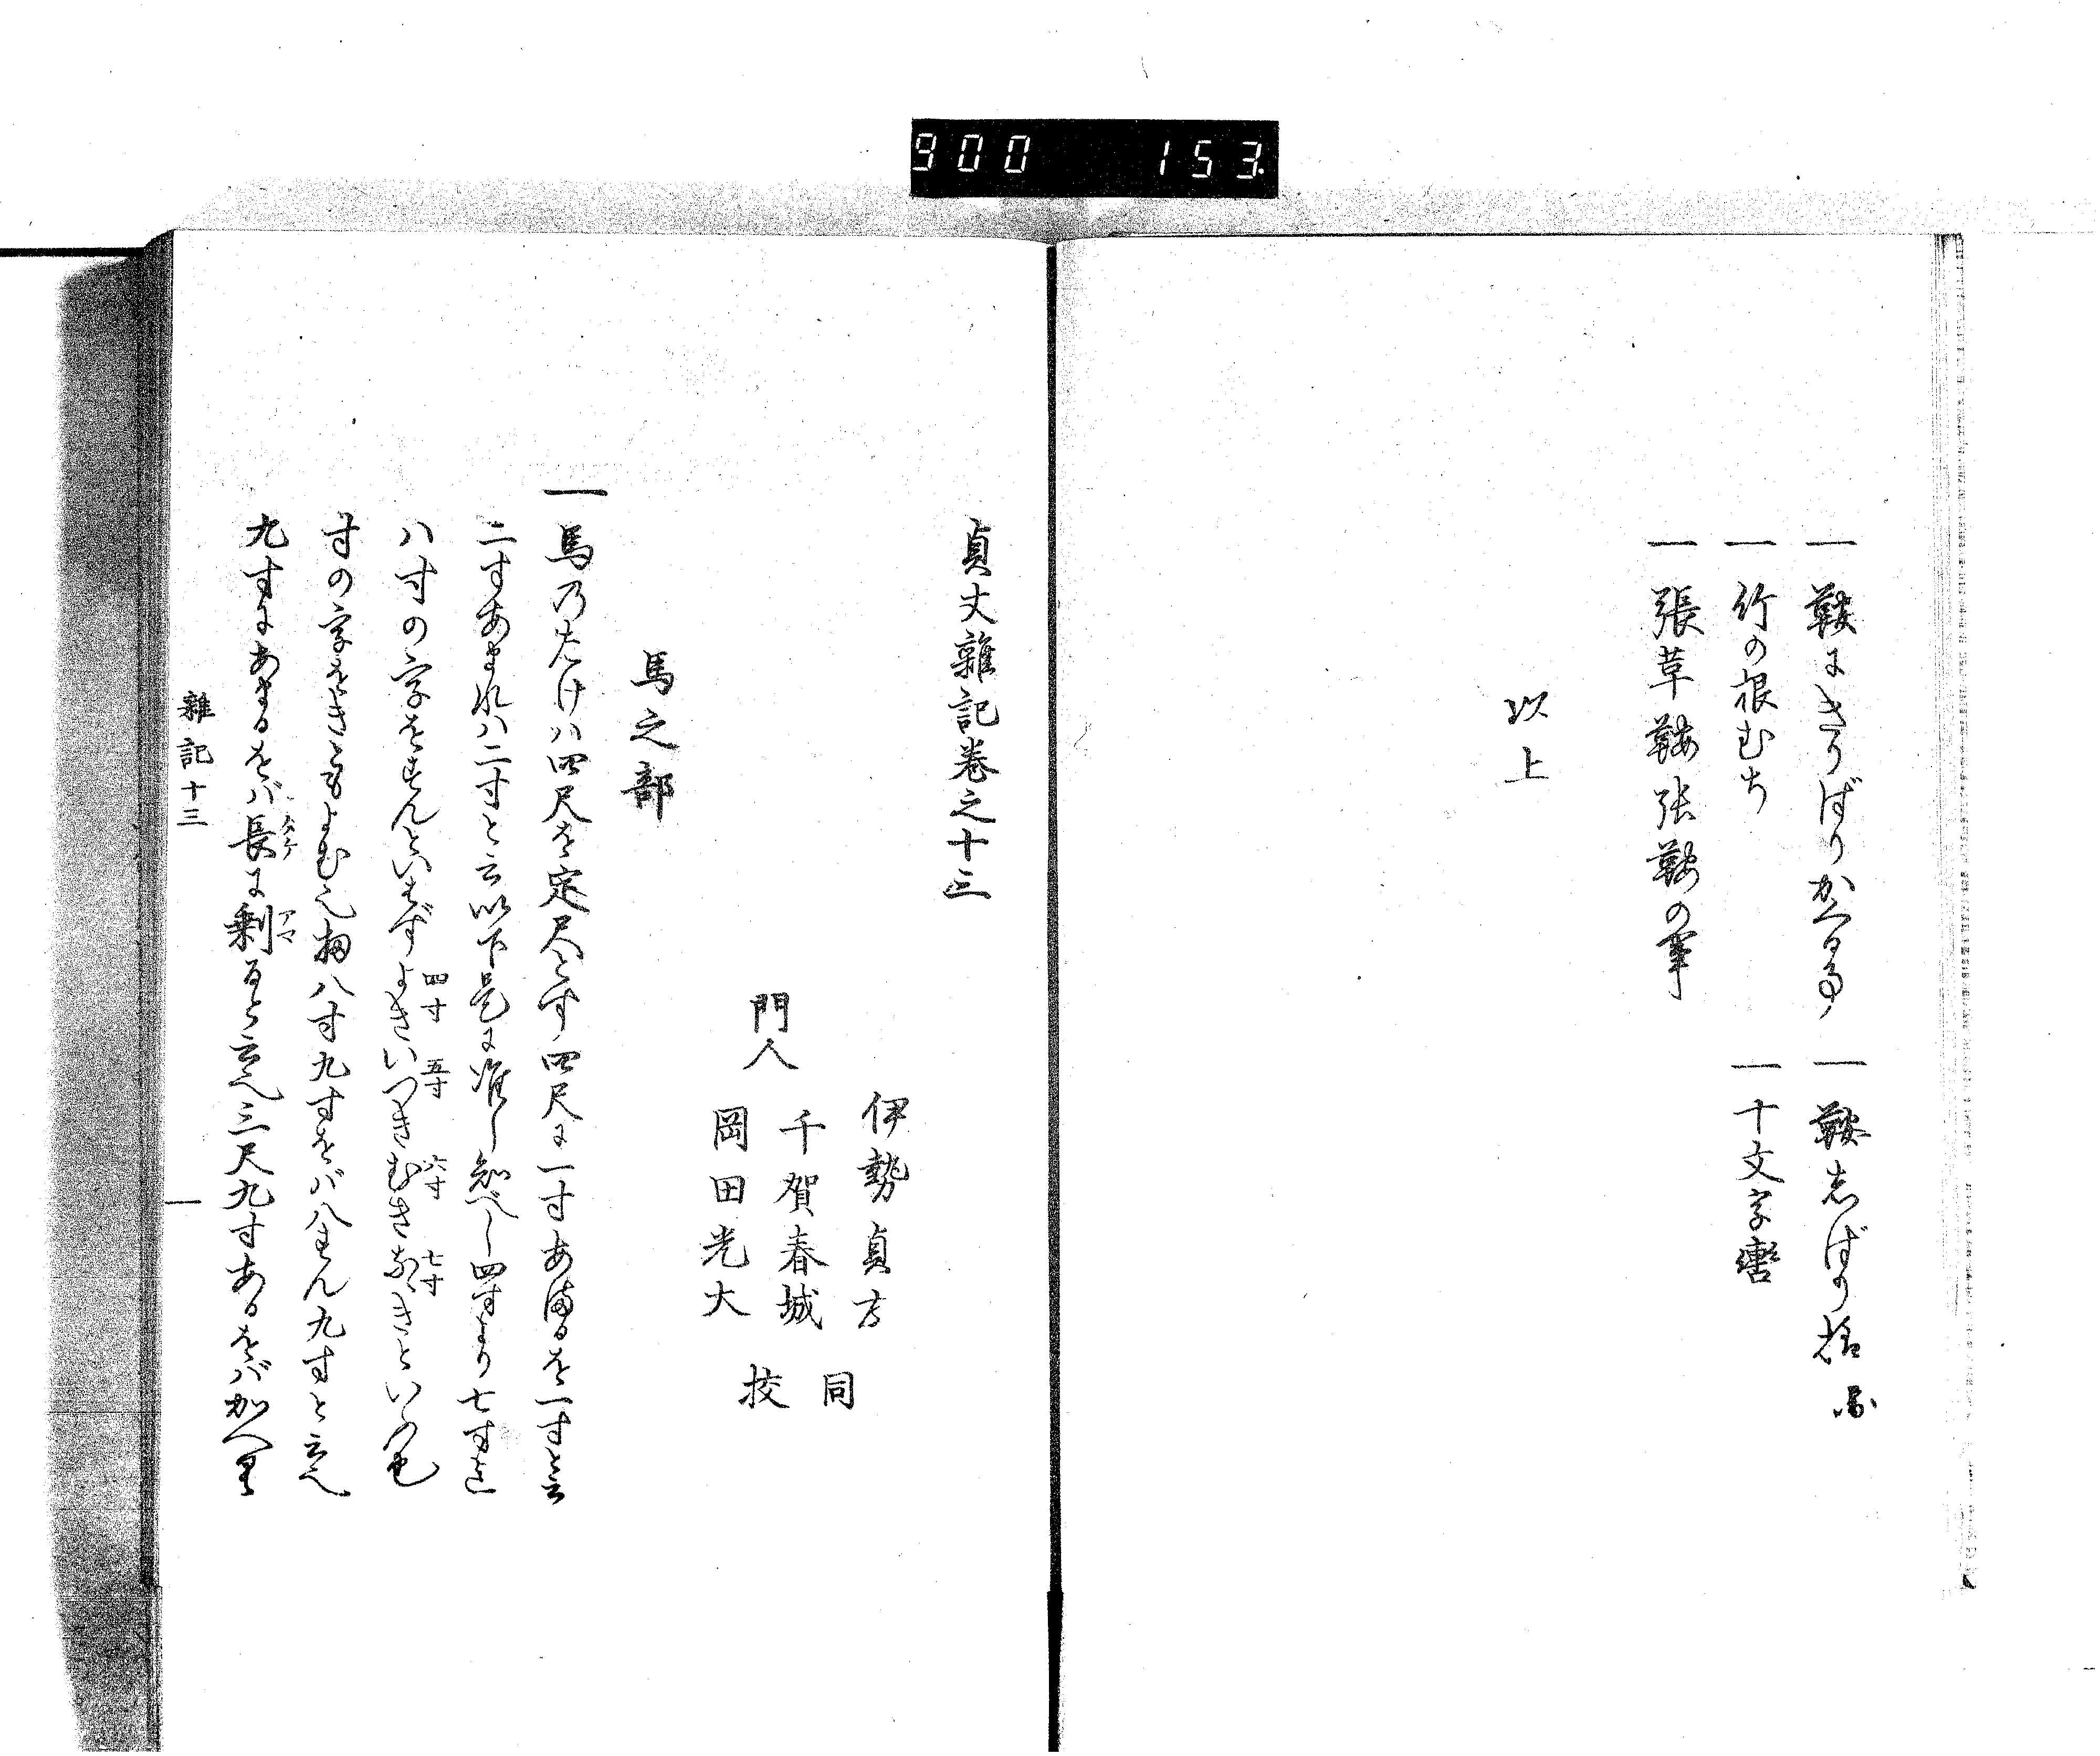 900 153.
一鞍にきりばりかへる事 一鞍しばり様 図
一竹の根むち 一十文字轡
一張革鞍張鞍の事
以上
貞丈雑記巻之十三
伊勢貞方
門人 千賀春城 同
岡田光大 挍
馬之部
一馬乃たけハ四尺を定尺とす四尺に一寸あまるを一寸と云
二寸あまれハ二寸と云以下是に准し知べし四寸より七寸迄
ハ寸の字をすんといはずよきいつきむきなゝきといふ也
四寸 五寸 六寸 七寸
寸の字をきともよむ也扨八寸九寸をバ八すん九寸と云也
九寸にあまるをバ長に剰ると云也三尺九寸あるをバかへり
タケ アマ
雑記十三
一